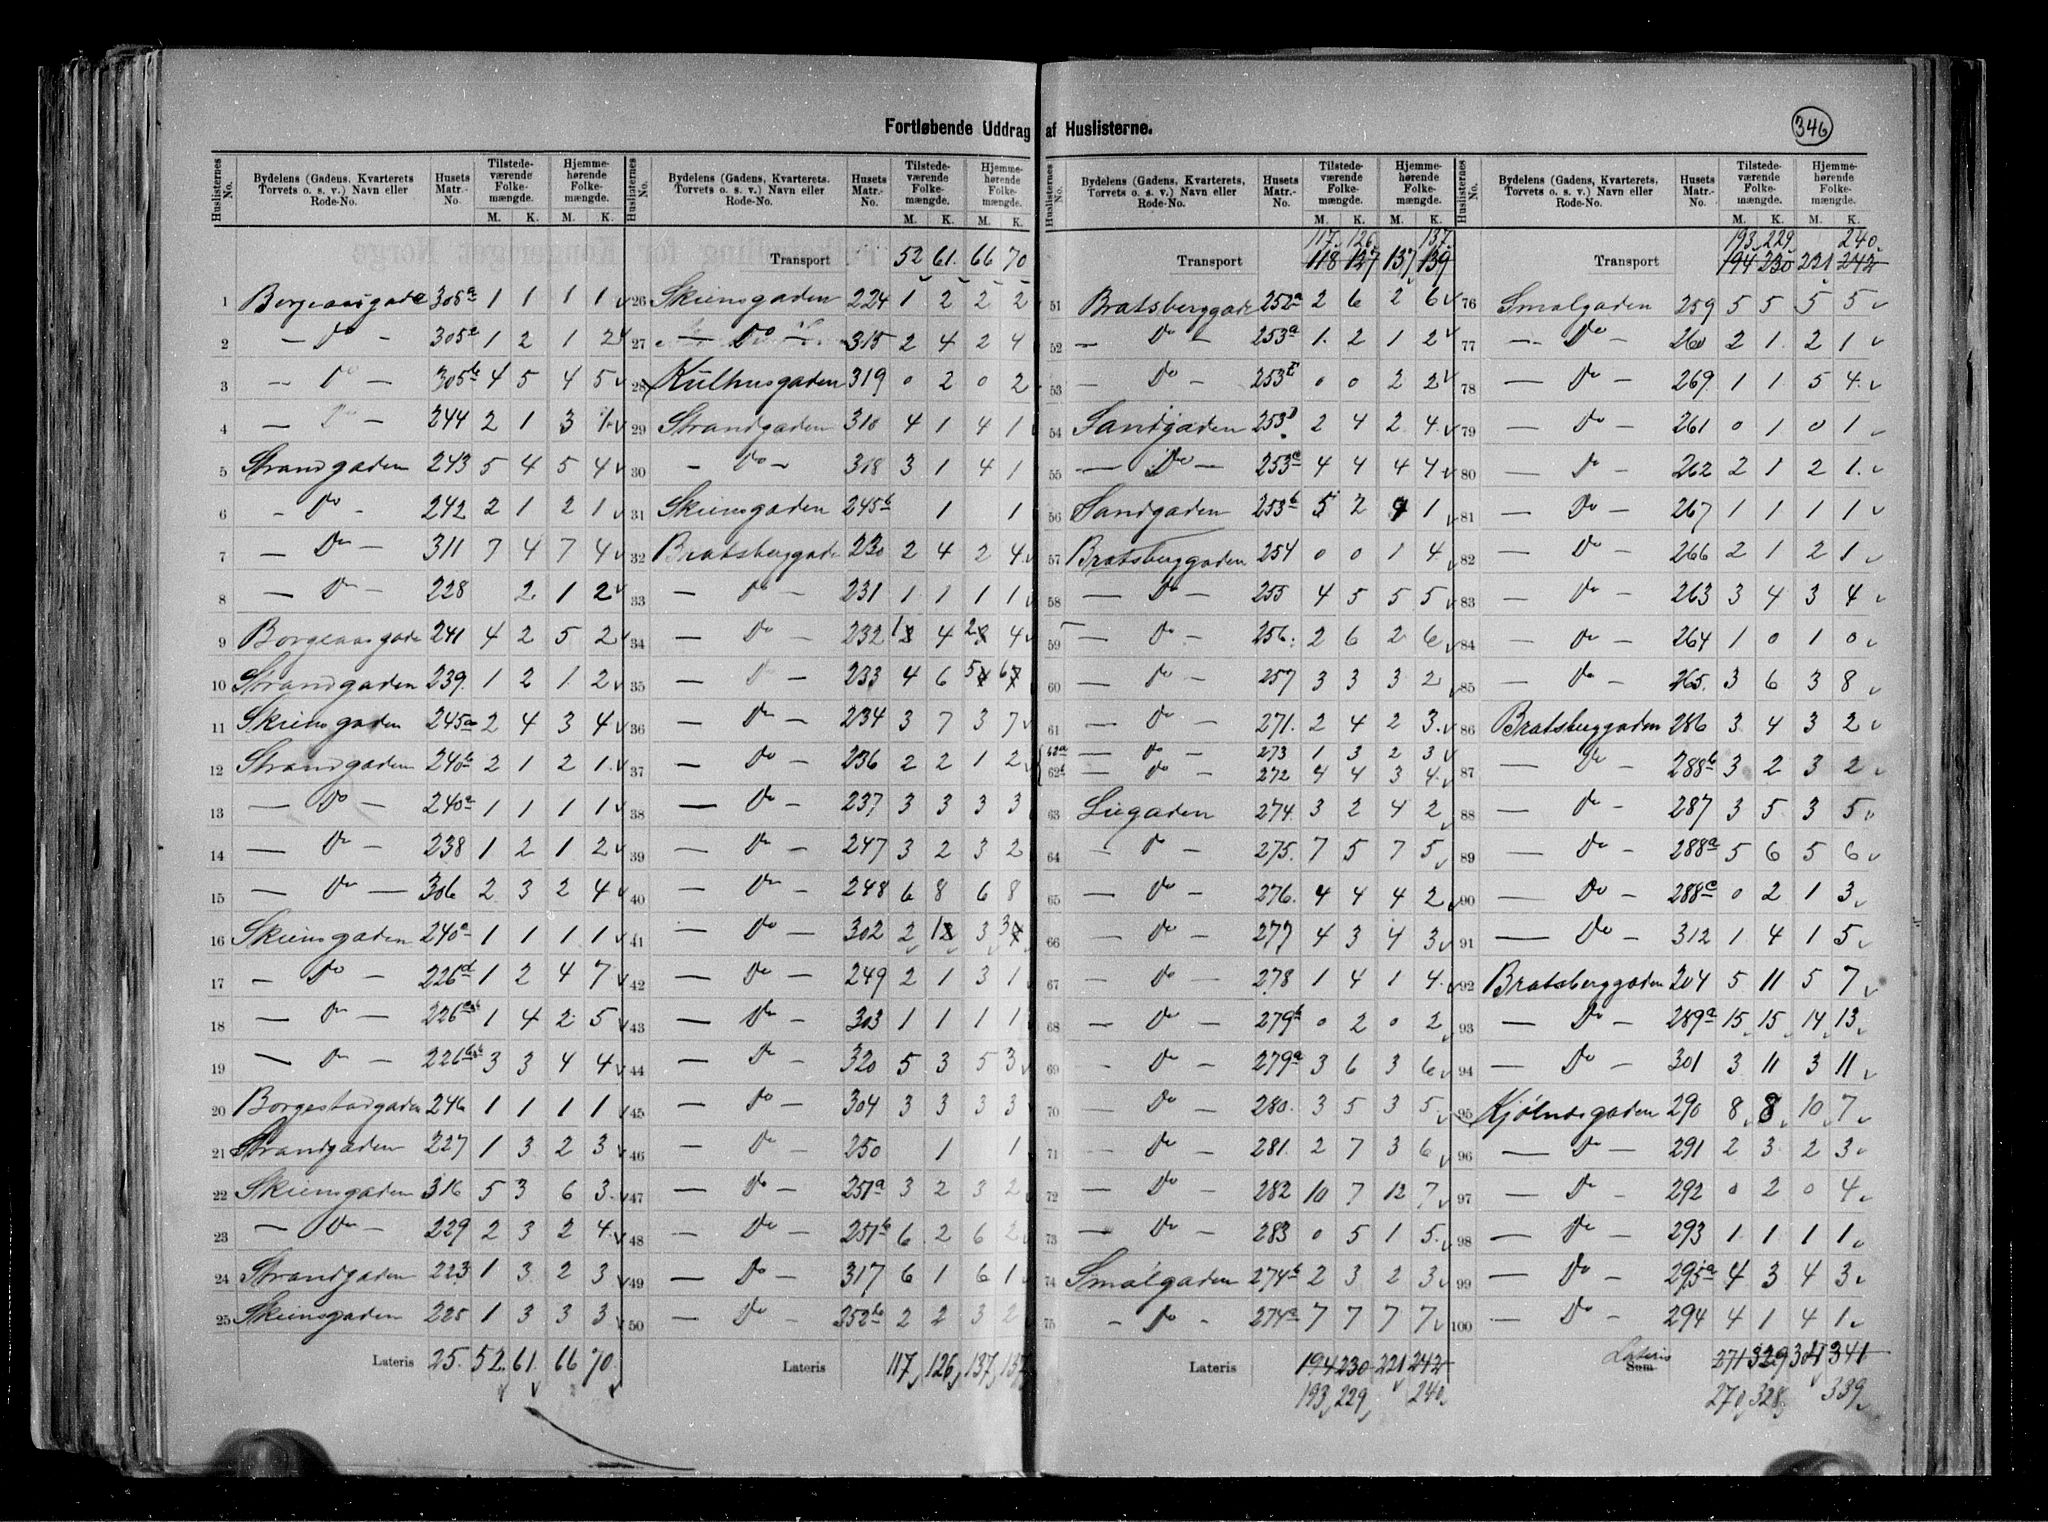 Fortløbende Uddrag af Huslisterne.
346
Huslisternes No. | Bydelens (Gadens, Kvarterets, Torvets o. s. v.) Navn eller Rode-No. | Husets Matr.-No. | Tilstedeværende Folkemængde. M. K. | Hjemmehørende Folkemængde. M. K.
1 Borgeaasgade 305a 1 1 1 1
2 — Do — 305a 1 2 1 2
3 — Do — 305b 4 5 4 5
4 — Do — 244 2 1 3 1
5 Strandgaden 243 5 4 5 4
6 - Do - 242 2 1 2 1
7 — Do — 311 7 4 7 4
8 — Do — 228 2 1 2
9 Borgeaasgade 241 4 2 5 2
10 Strandgaden 239 1 2 1 2
11 Skiensgaden 245a 2 4 3 4
12 Strandgaden 240b 2 1 2 1
13 — Do — 240a 1 1 1 1
14 — Do — 238 1 2 1 2
15 — Do — 306 2 3 2 4
16 Skiensgaden 240a 1 1 1 1
17 — Do — 226d 1 2 4 7
18 — Do — 226 1 4 2 5
19 — Do — 226 3 3 4 4
20 Borgestadgaden 246 1 1 1 1
21 Strandgaden 227 1 3 2 3
22 Skiensgaden 316 5 3 6 3
23 — Do — 229 2 3 2 4
24 Strandgaden 223 1 3 2 3
25 Skiensgaden 225 1 3 3 3
Lateris 25. 52 61 66 70
Huslisternes No. | Bydelens (Gadens, Kvarterets, Torvets o. s. v.) Navn eller Rode-No. | Husets Matr.-No. | Tilstedeværende Folkemængde. M. K. | Hjemmehørende Folkemængde. M. K.
Transport 52 61. 66 70
26 Skiensgaden 224 1 2 2 2
27 — Do — 315 2 4 2 4
28 Kulhusgaden 319 0 2 0 2
29 Strandgaden 318 4 1 4 1
30 - Do - 318 3 1 4 1
31 Skiensgaden 245b 1 1
32 Bratsberggade 230 2 4 2 4
33 — Do — 231 1 1 1 1
34 — Do — 232 1 4 2 4
35 — Do — 233 4 6 5 6
36 — Do — 234 3 7 3 7
37 — Do — 236 2 2 1 2
38 — Do — 237 3 3 3 3
39 — Do — 247 3 2 3 2
40 — Do — 248 6 8 6 8
41 — Do — 302 2 1 3 3
42 — Do — 249 2 1 3 1
43 — Do — 303 1 1 1 1
44 — Do — 320 5 3 5 3
45 — Do — 304 3 3 3 3
46 — Do — 250 1 1
47 — Do — 251a 3 2 3 2
48 — Do — 251b 6 2 6 2
49 — Do — 317 6 1 6 1
50 — Do — 252b 2 2 3 2
Lateris 117 126 137 137
Huslisternes No. | Bydelens (Gadens, Kvarterets, Torvets o. s. v.) Navn eller Rode-No. | Husets Matr.-No. | Tilstedeværende Folkemængde. M. K. | Hjemmehørende Folkemængde. M. K.
117 126 137
Transport 118 127 137 139
51 Bratsberggade 252a 2 6 2 6
52 — Do — 253a 1 2 1 2
53 — Do — 253 0 0 2 2
54 Sandgaden 253 2 4 2 4
55 — Do — 253 4 4 4 4
56 Sandgaden 253b 5 2 4 1
57 Bratsberggaden 254 0 0 1 4
58 — Do — 255 4 5 5 5
59 — Do — 256 2 6 2 6
60 — Do — 257 3 3 3 2
61 — Do — 271 2 4 2 3
62a — Do — 273 1 3 2 3
62b — Do — 272 4 4 3 4
63 Liegaden 274 3 2 4 2
64 — Do — 275 7 5 7 5
65 — Do — 276 4 4 4 2
66 — Do — 277 4 3 4 3
67 — Do — 278 1 4 1 4
68 — Do — 279b 0 2 0 2
69 — Do — 279a 3 6 3 6
70 — Do — 280 3 5 3 5
71 — Do — 281 2 7 3 6
72 — Do — 282 10 7 12 7
73 — Do — 283 0 5 1 5
74 Smalgaden 274b 2 3 2 3
75 - Do - 274a 7 7 7 7
Lateris 194 230 221 242
193 229 240
Huslisternes No. | Bydelens (Gadens, Kvarterets, Torvets o. s. v.) Navn eller Rode-No. | Husets Matr.-No. | Tilstedeværende Folkemængde. M. K. | Hjemmehørende Folkemængde. M. K.
193 229 240
Transport 194 230 221 242
76 Smalgaden 259 5 5 5 5
77 — Do — 260 2 1 2 1
78 — Do — 269 1 1 5 4
79 — Do — 261 0 1 0 1
80 — Do — 262 2 1 2 1
81 — Do — 267 1 1 1 1
82 — Do — 266 2 1 2 1
83 — Do — 263 3 4 3 4
84 — Do — 264 1 0 1 0
85 — Do — 265 3 6 3 8
86 Bratsberggaden 286 3 4 3 2
87 — Do — 288b 3 2 3 2
88 — Do — 287 3 5 3 5
89 — Do — 288a 5 6 5 6
90 — Do — 288c 0 2 1 3
91 — Do — 312 1 4 1 5
92 Bratsberggaden 204 5 11 5 7
93 — Do — 289a 15 15 14 13
94 — Do — 301 3 11 3 11
95 Kjølnesgaden 290 8 8 10 7
96 — Do — 291 2 3 2 3
97 — Do — 292 0 2 0 4
98 — Do — 293 1 1 1 1
99 — Do — 295a 4 3 4 3
100 — Do — 294 4 1 4 1
Lateris
Sum 271 329 301 341
270 328 339